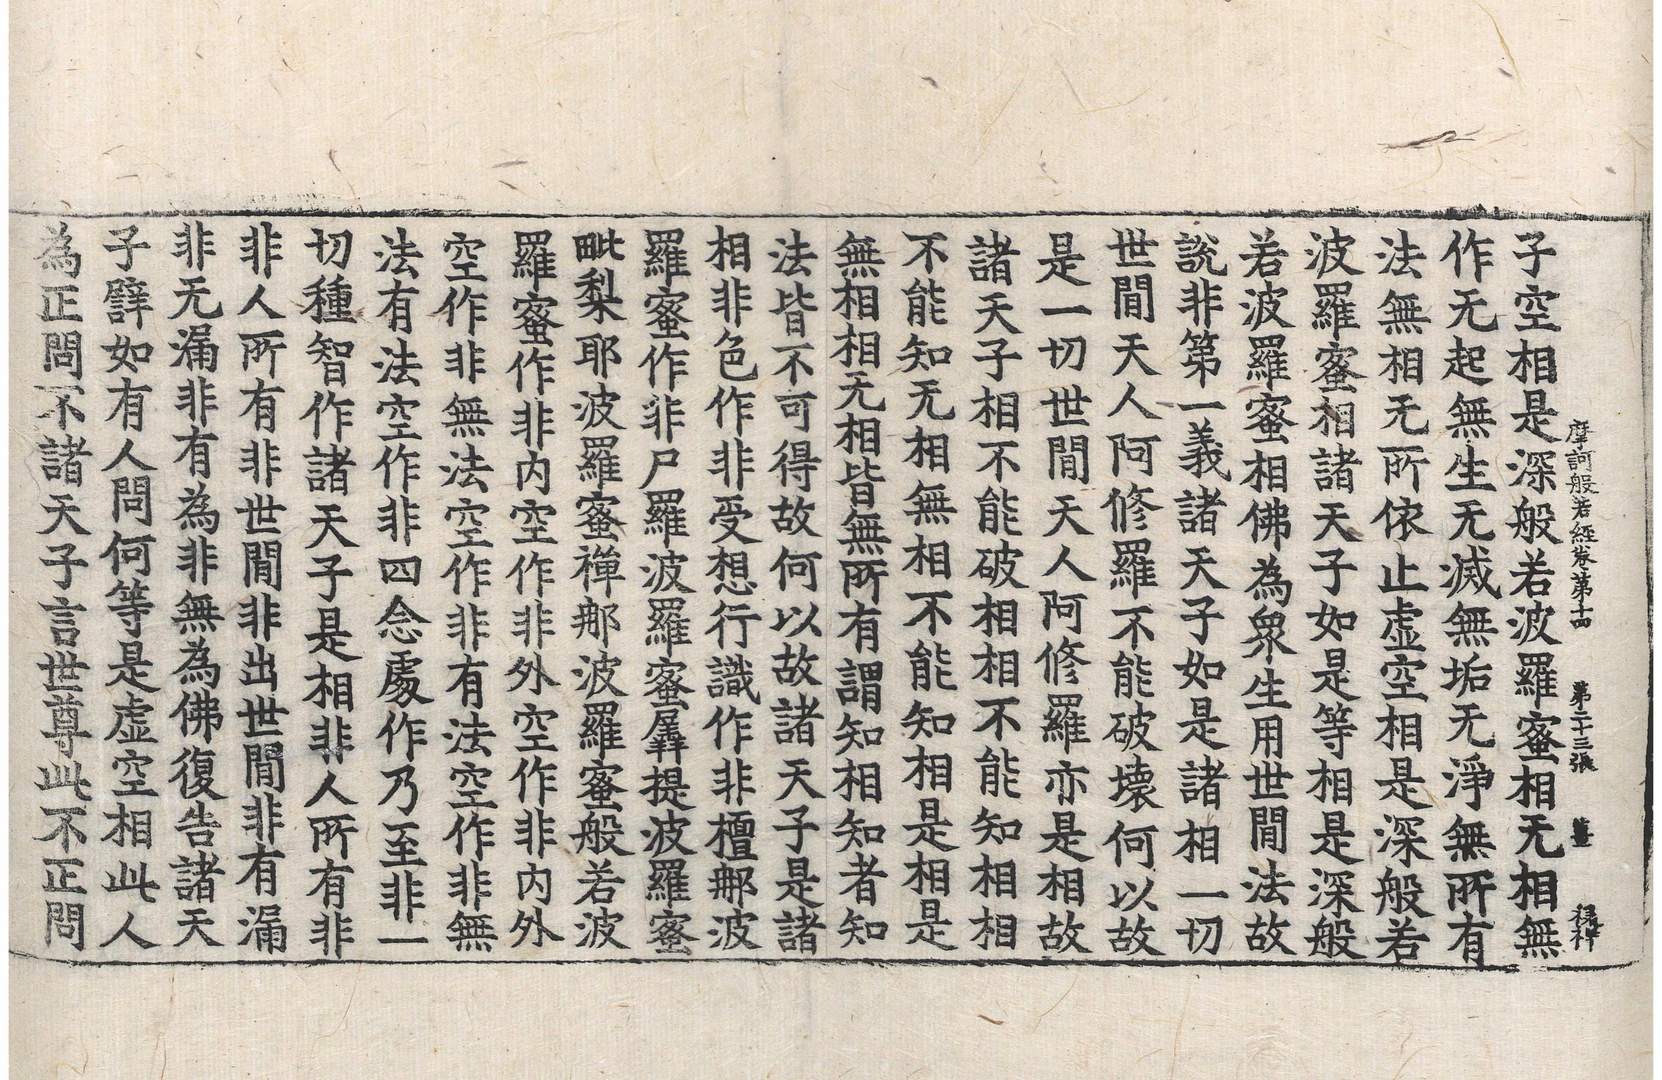 摩訶般若經卷第十四　第二十三張　薑　祿祥
子空相是深般若波羅蜜相无相無
作无起無生无滅無垢无淨無所有
法無相无所依止虛空相是深般若
波羅蜜相諸天子如是等相是深般
若波羅蜜相佛為衆生用世間法故
說非第一義諸天子如是諸相一切
世間天人阿修羅不能破壊何以故
是一切世間天人阿修羅亦是相故
諸天子相不能破相相不能知相相
不能知无相無相不能知相是相是
無相相无相皆無所有謂知相知者知
法皆不可得故何以故諸天子是諸
相非色作非受想行識作非檀那波
羅蜜作非尸羅波羅蜜羼提波羅蜜
毗梨耶波羅蜜禪那波羅蜜般若波
羅蜜作非内空作非外空作非内外
空作非無法空作非有法空作非無
法有法空作非四念處作乃至非一
切種智作諸天子是相非人所有非
非人所有非世間非出世間非有漏
非无漏非有為非無為佛復告諸天
子譬如有人問何等是虛空相此人
為正問不諸天子言世尊此不正問